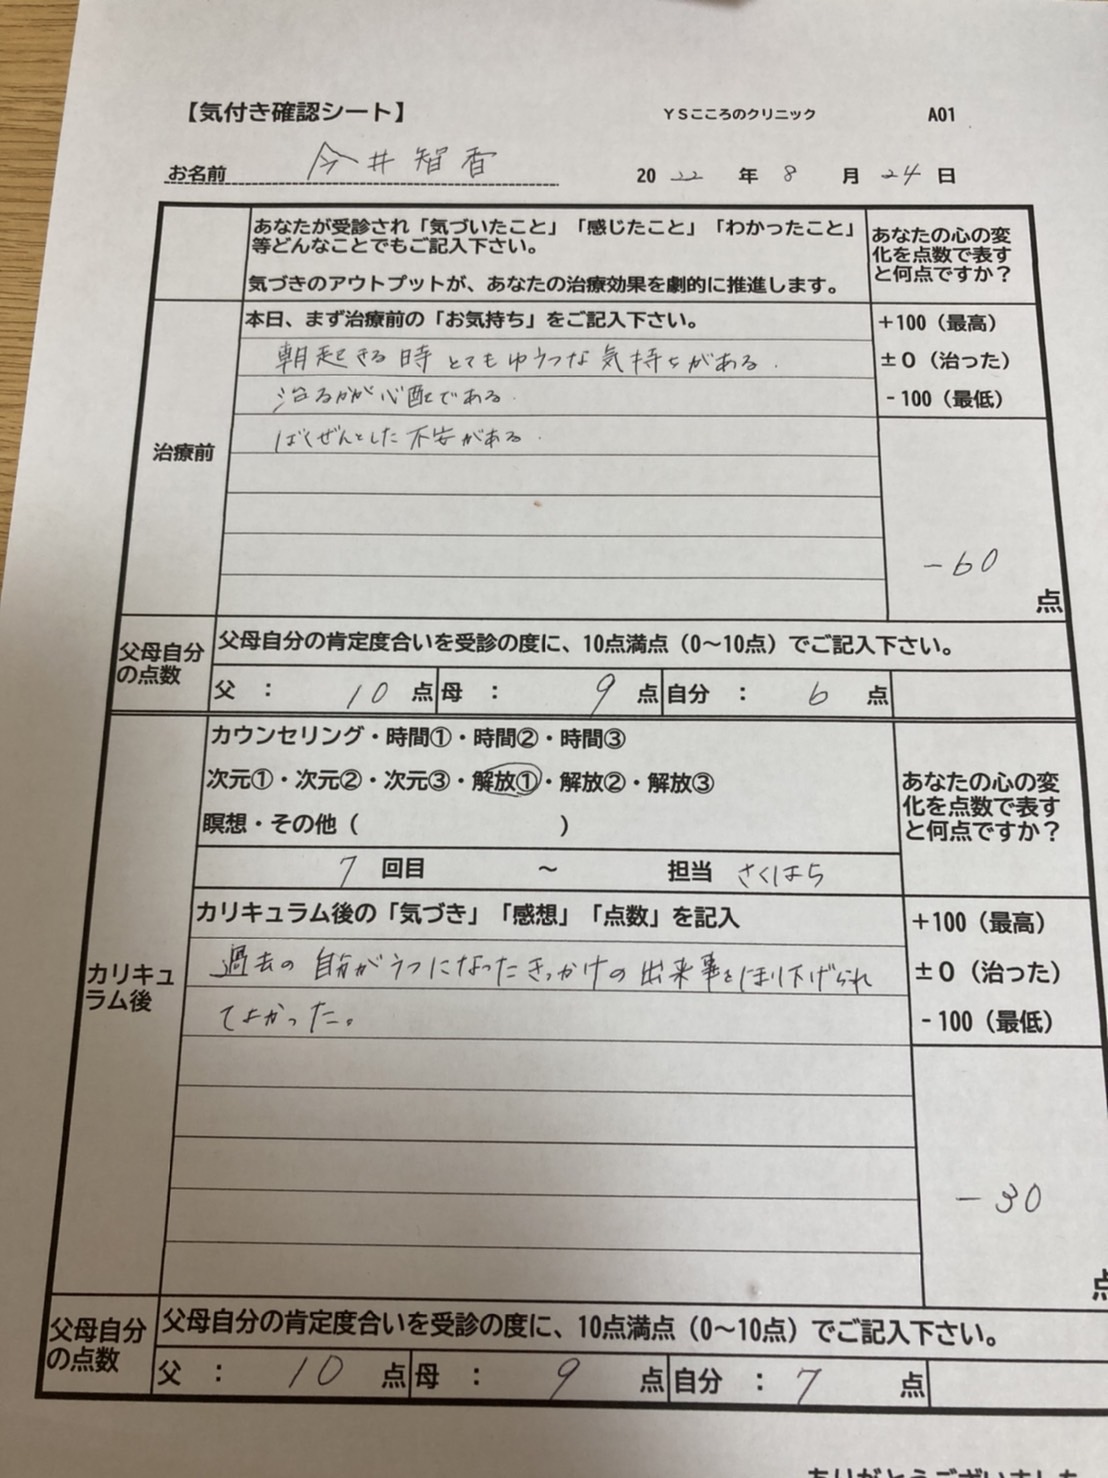 【気付き確認シート】 YSこころのクリニック A01
お名前 今井智香 2022年8月24日
あなたが受診され「気づいたこと」「感じたこと」「わかったこと」
等どんなことでもご記入下さい。
気づきのアウトプットが、あなたの治療効果を劇的に推進します。
あなたの心の変
化を点数で表す
と何点ですか？
治療前
本日、まず治療前の「お気持ち」をご記入下さい。
朝起きる時とてもゆううつな気持ちがある.
治るかが心配である.
ばくぜんとした不安がある.
+100（最高）
±0（治った）
-100（最低）
-60
点
父母自分
の点数
父母自分の肯定度合いを受診の度に、10点満点（0～10点）でご記入下さい。
父 ： 10 点 母 ： 9 点 自分 ： 6 点
カリキュ
ラム後
カウンセリング・時間①・時間②・時間③
次元①・次元②・次元③・解放①・解放②・解放③
瞑想・その他（ ）
7 回目 ～ 担当 さくはら
あなたの心の変
化を点数で表す
と何点ですか？
カリキュラム後の「気づき」「感想」「点数」を記入
過去の自分がうつになったきっかけの出来事をほり下げられ
てよかった。
+100（最高）
±0（治った）
-100（最低）
-30
点
父母自分
の点数
父母自分の肯定度合いを受診の度に、10点満点（0～10点）でご記入下さい。
父 ： 10 点 母 ： 9 点 自分 ： 7 点
ありがとうございました